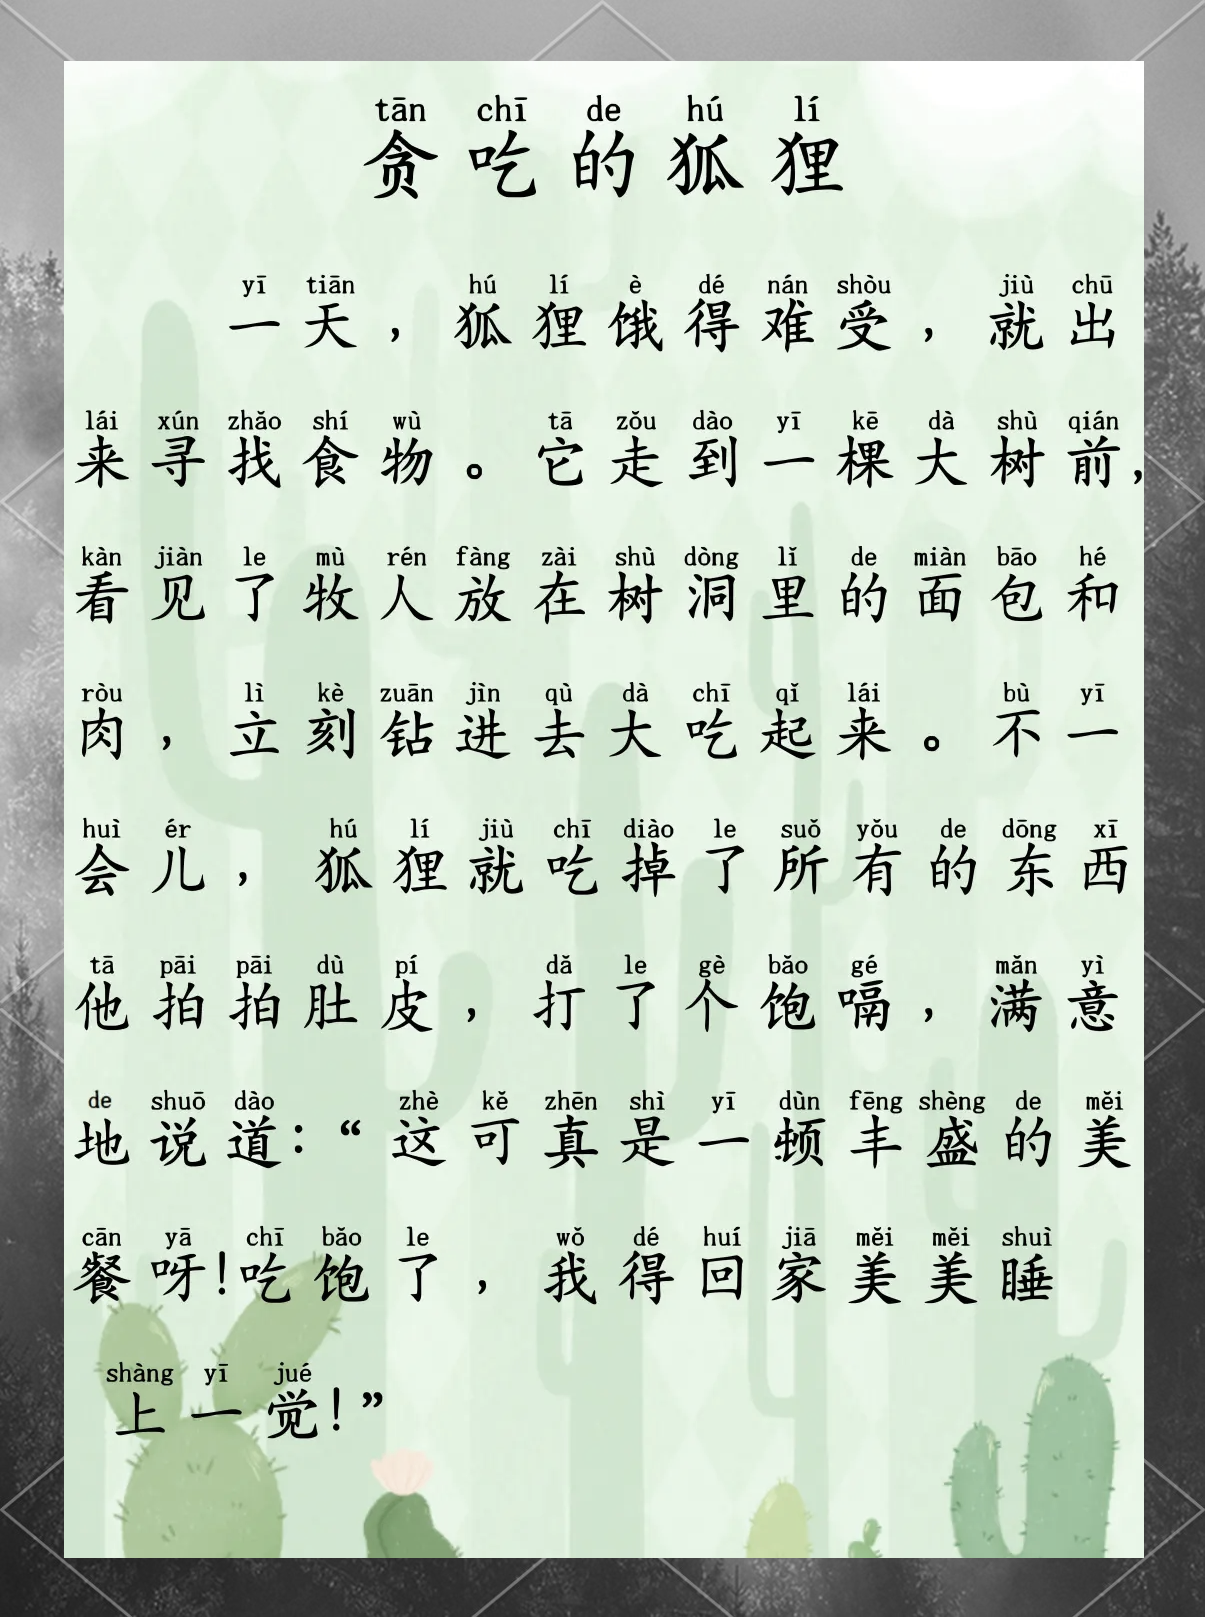 tān chī de hú lí
贪吃的狐狸
yī tiān hú lí è dé nán shòu jiù chū
一天，狐狸饿得难受，就出
lái xún zhǎo shí wù tā zǒu dào yī kē dà shù qián
来寻找食物。它走到一棵大树前，
kàn jiàn le mù rén fàng zài shù dòng lǐ de miàn bāo hé
看见了牧人放在树洞里的面包和
ròu lì kè zuān jìn qù dà chī qǐ lái bù yī
肉，立刻钻进去大吃起来。不一
huì ér hú lí jiù chī diào le suǒ yǒu de dōng xī
会儿，狐狸就吃掉了所有的东西
tā pāi pāi dù pí dǎ le gè bǎo gé mǎn yì
他拍拍肚皮，打了个饱嗝，满意
de shuō dào zhè kě zhēn shì yī dùn fēng shèng de měi
地说道：“这可真是一顿丰盛的美
cān yā chī bǎo le wǒ dé huí jiā měi měi shuì
餐呀！吃饱了，我得回家美美睡
shàng yī jué
上一觉！”